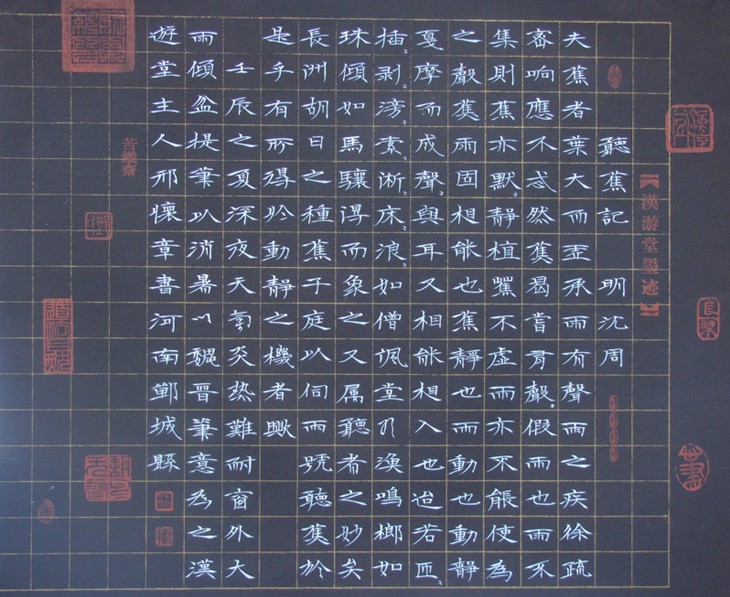 聽蕉記 明沈周
【漢游堂墨迹】
夫蕉者葉大而虛承雨有聲雨之疾徐疏
密响應不忒然蕉曷嘗有聲〻假雨也雨不
集則蕉亦默〻靜植蕉不虛雨亦不能使為
之聲蕉雨固相能也蕉靜也雨動也動靜
戛摩而成聲與耳又相能相入也迨若匝〻
插〻剝〻滂〻索〻淅〻床〻浪〻如僧諷堂乃漁鳴榔如
珠傾如馬驤得而象之又属聽者之妙矣
長洲胡日之種蕉于庭以伺雨號聽蕉於
是乎有所得於動靜之機者歟
壬辰之夏深夜天氣炎热難耐窗外大
雨傾盆提筆以消暑以魏晉筆意為之漢
遊堂主人邢懷章書河南郾城縣